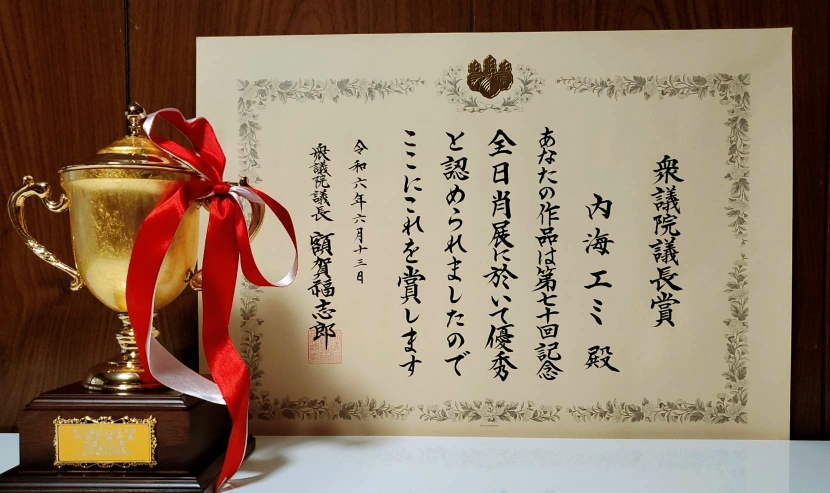 衆議院議長賞
内海エミ殿
あなたの作品は第七十回記念
全日肖展に於いて優秀
と認められましたので
ここにこれを賞します
令和六年六月十三日
衆議院議長 額賀福志郎